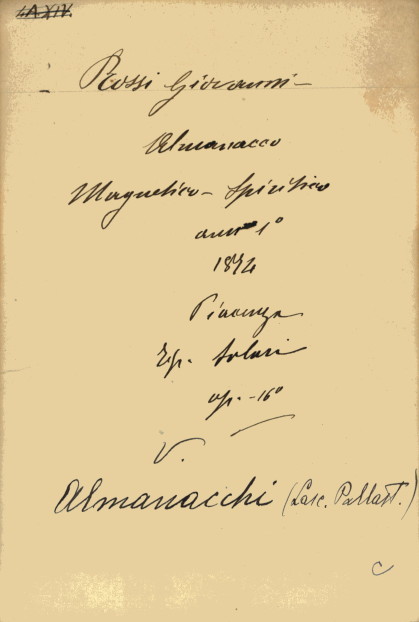 LA XIV.
Rossi Giovanni
Almanacco
Magnetico - Spiritico
anno 1º
1874
Piacenza
Tip. Solari
op. - 16º
V.
Almanacchi (Lasc. Pallast.)
C